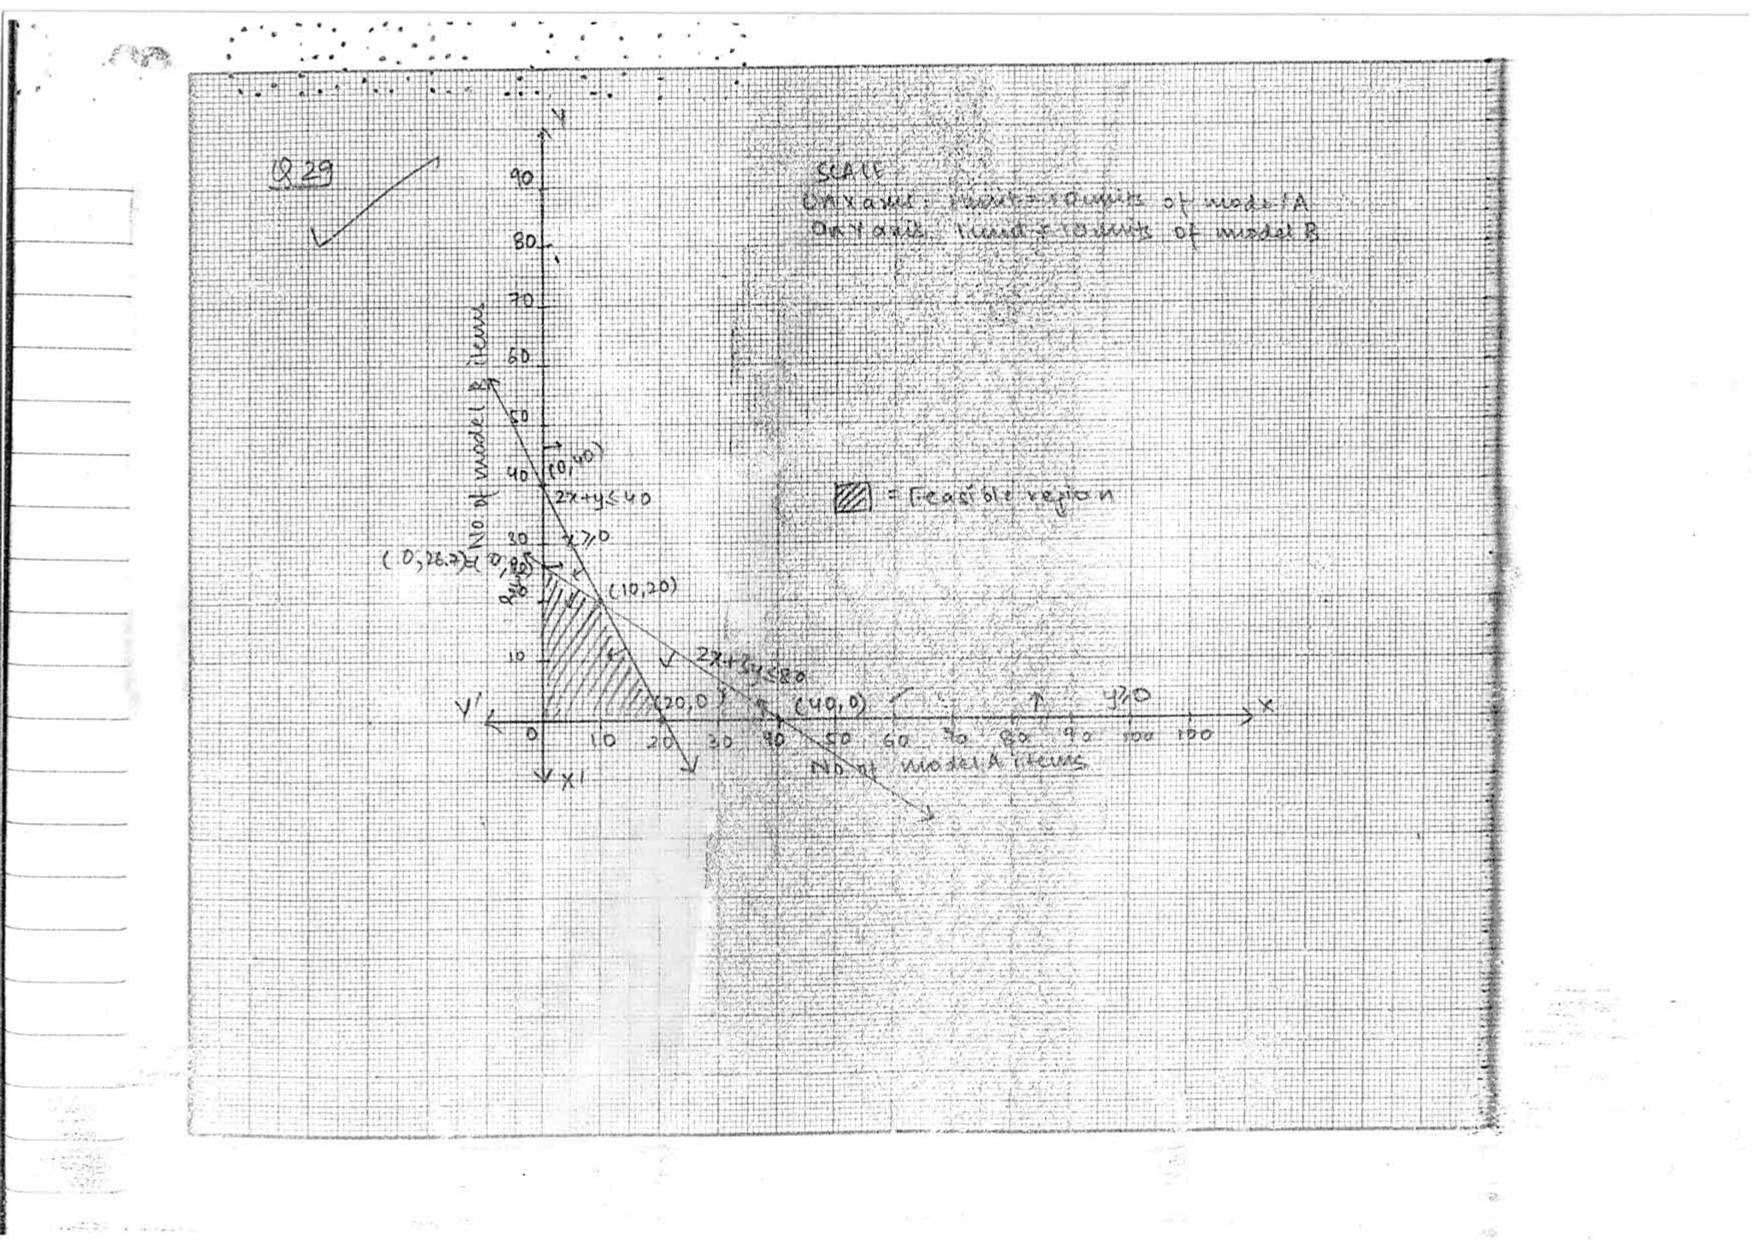 Q 29
Y
SCALE
On X axis: 1 unit = 10 units of model A
On Y axis: 1 unit = 10 units of model B
90
80
70
60
50
40
30
10
No of model B items
(0,40)
2x+y≤40
x≥0
(0,26.7)
(10,20)
= Feasible region
2x+3y≤80
(20,0)
(40,0)
y≥0
Y'
X
0 10 20 30 40 50 60 70 80 90 100 100
No of model A items
X'